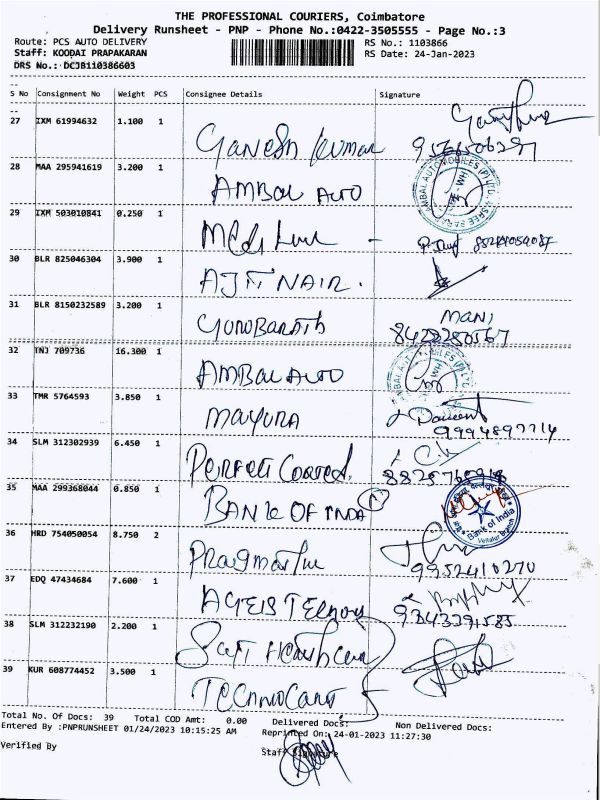 THE PROFESSIONAL COURIERS, Coimbatore
Delivery Runsheet - PNP - Phone No.:0422-3505555 - Page No.:3
Route: PCS AUTO DELIVERY RS No.: 1103866
Staff: KOODAI PRAPAKARAN RS Date: 24-Jan-2023
DRS No.: DCJB110386603
S No Consignment No Weight PCS Consignee Details Signature
27 IXM 61994632 1.100 1 GANESH KUMAR
28 MAA 295941619 3.200 1 AMBAL AUTO
29 IXM 503010841 0.250 1
30 BLR 825046304 3.900 1 AJIT NAIR.
31 BLR 8150232589 3.200 1 GURUBARATH MANI
8428280567
32 TNJ 709736 16.300 1 AMBAL AUTO
33 TMR 5764593 3.850 1 MAYURA
9994897714
34 SLM 312302939 6.450 1 PERFECT COATED
35 MAA 299368044 0.850 1 BANK OF INDIA
Bank of India
36 HRD 754050054 8.750 2
9952410270
37 EDQ 47434684 7.600 1
9343391585
38 SLM 312232190 2.200 1
39 KUR 608774452 3.500 1
Total No. Of Docs: 39 Total COD Amt: 0.00 Delivered Docs: Non Delivered Docs:
Entered By :PNPRUNSHEET 01/24/2023 10:15:25 AM Reprinted On: 24-01-2023 11:27:30
Verified By Staff Signature